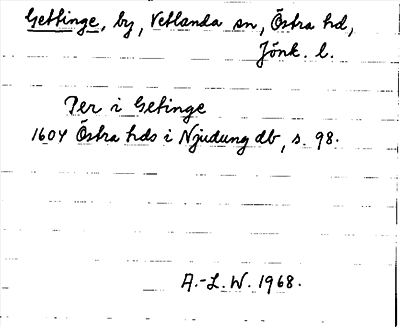 Gettinge, by, Vetlanda sn, Östra hd,
Jönk. l.
Per i Getinge
1604 Östra hds i Njudung db, s. 98.
A.-L. W. 1968.